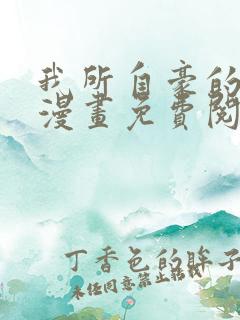 我所自豪的
漫畫免費閱
丁香色的眸子
未经同意禁止转载